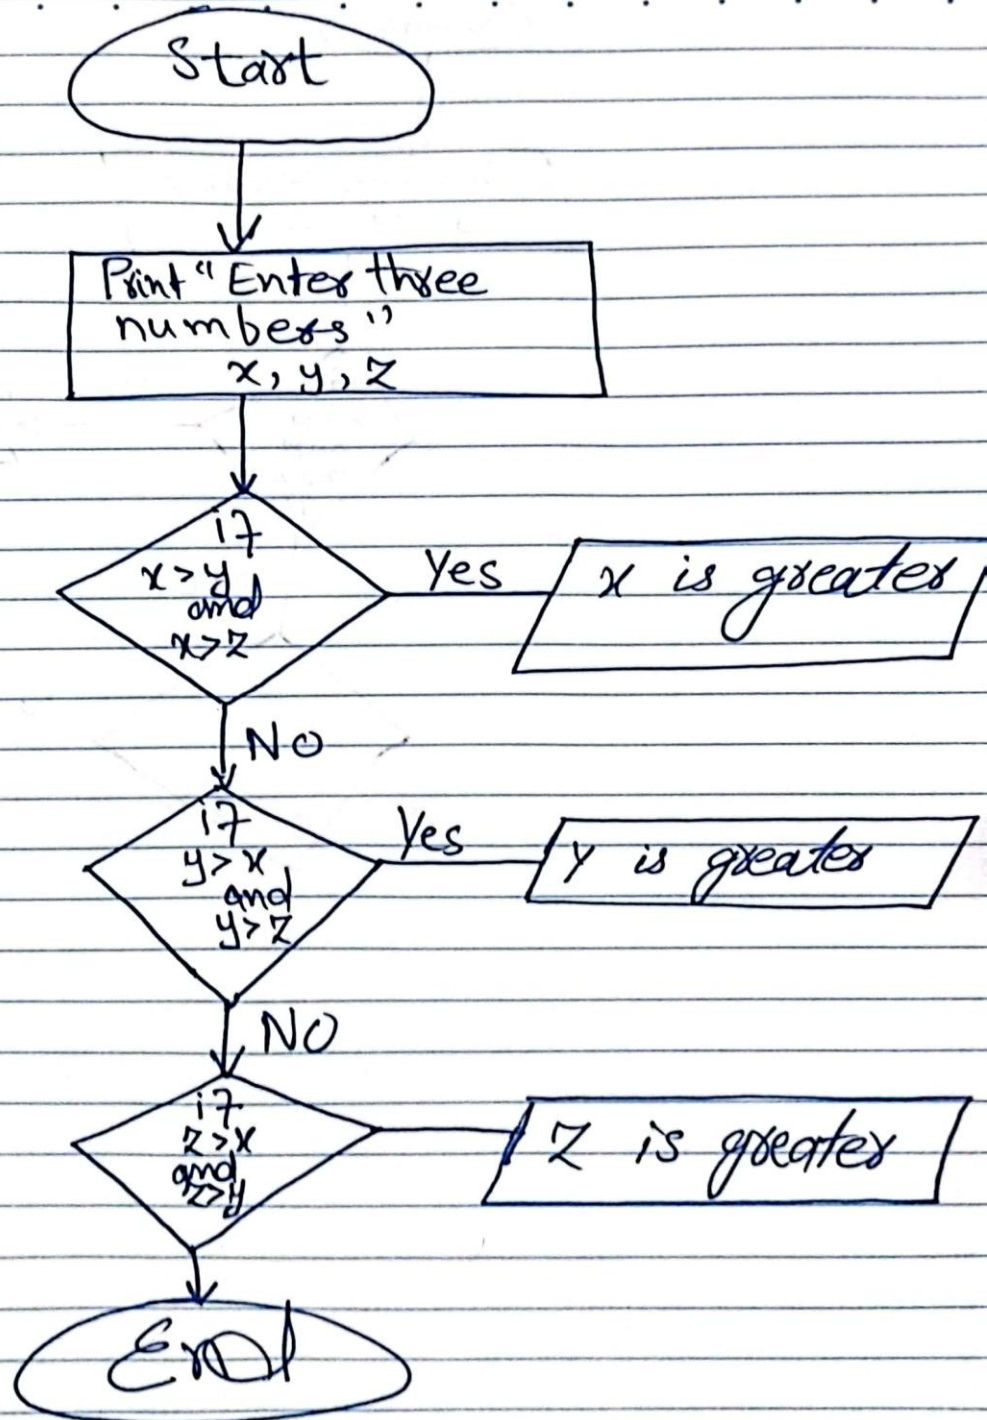 Start
Print "Enter three
numbers"
x, y, z
if
x > y
and
x > z
Yes
x is greater
NO
if
y > x
and
y > z
Yes
Y is greater
NO
if
z > x
and
z > y
Z is greater
End